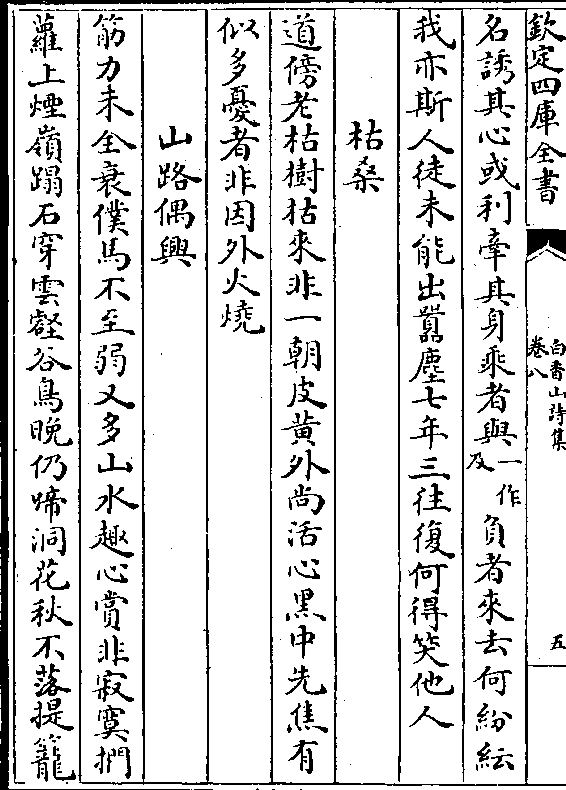 欽定四庫全書
白香山詩集
卷八
五
名誘其心或利牽其身乘者與一作及負者來去何紛紜
我亦斯人徒未能出囂塵七年三往復何得笑他人
枯桑
道傍老枯樹枯來非一朝皮黃外尚活心黑中先焦有
似多憂者非因外火燒
山路偶興
筋力未全衰僕馬不至弱又多山水趣心賞非寂寞捫
蘿上煙嶺蹋石穿雲壑谷鳥晚仍啼洞花秋不落提籠